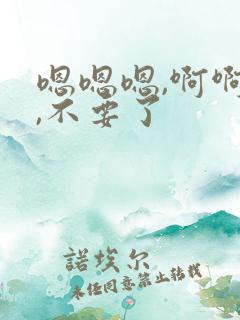 嗯嗯嗯,啊啊
,不要了
諾埃尔
未经同意禁止转载